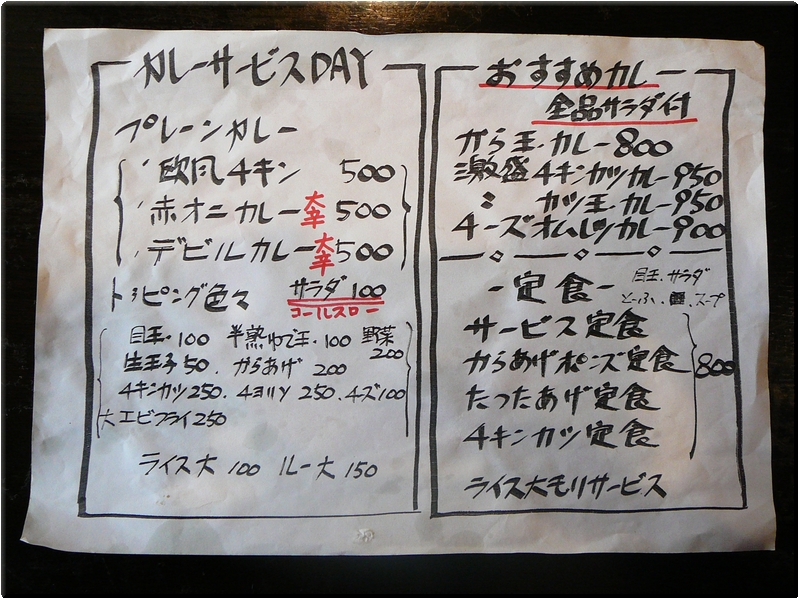 カレーサービスDAY
プレーンカレー
欧風チキン 500
赤オニカレー大辛 500
デビルカレー大辛 500
トッピング色々 サラダ100
コールスロー
目玉・100 半熟ゆで玉・100 野菜200
生玉子50. からあげ 200
チキンカツ250. チョリソ 250. チーズ100
大エビフライ250
ライス大 100 ルー大 150
おすすめカレー
全品サラダ付
から玉.カレー800
激盛チキンカツカレー950
〃 カツ玉.カレー950
チーズオムレツカレー900
-定食-
目玉.サラダ
とーふ、麺.スープ
サービス定食
からあげポンズ定食
たったあげ定食
チキンカツ定食
800
ライス大モリサービス